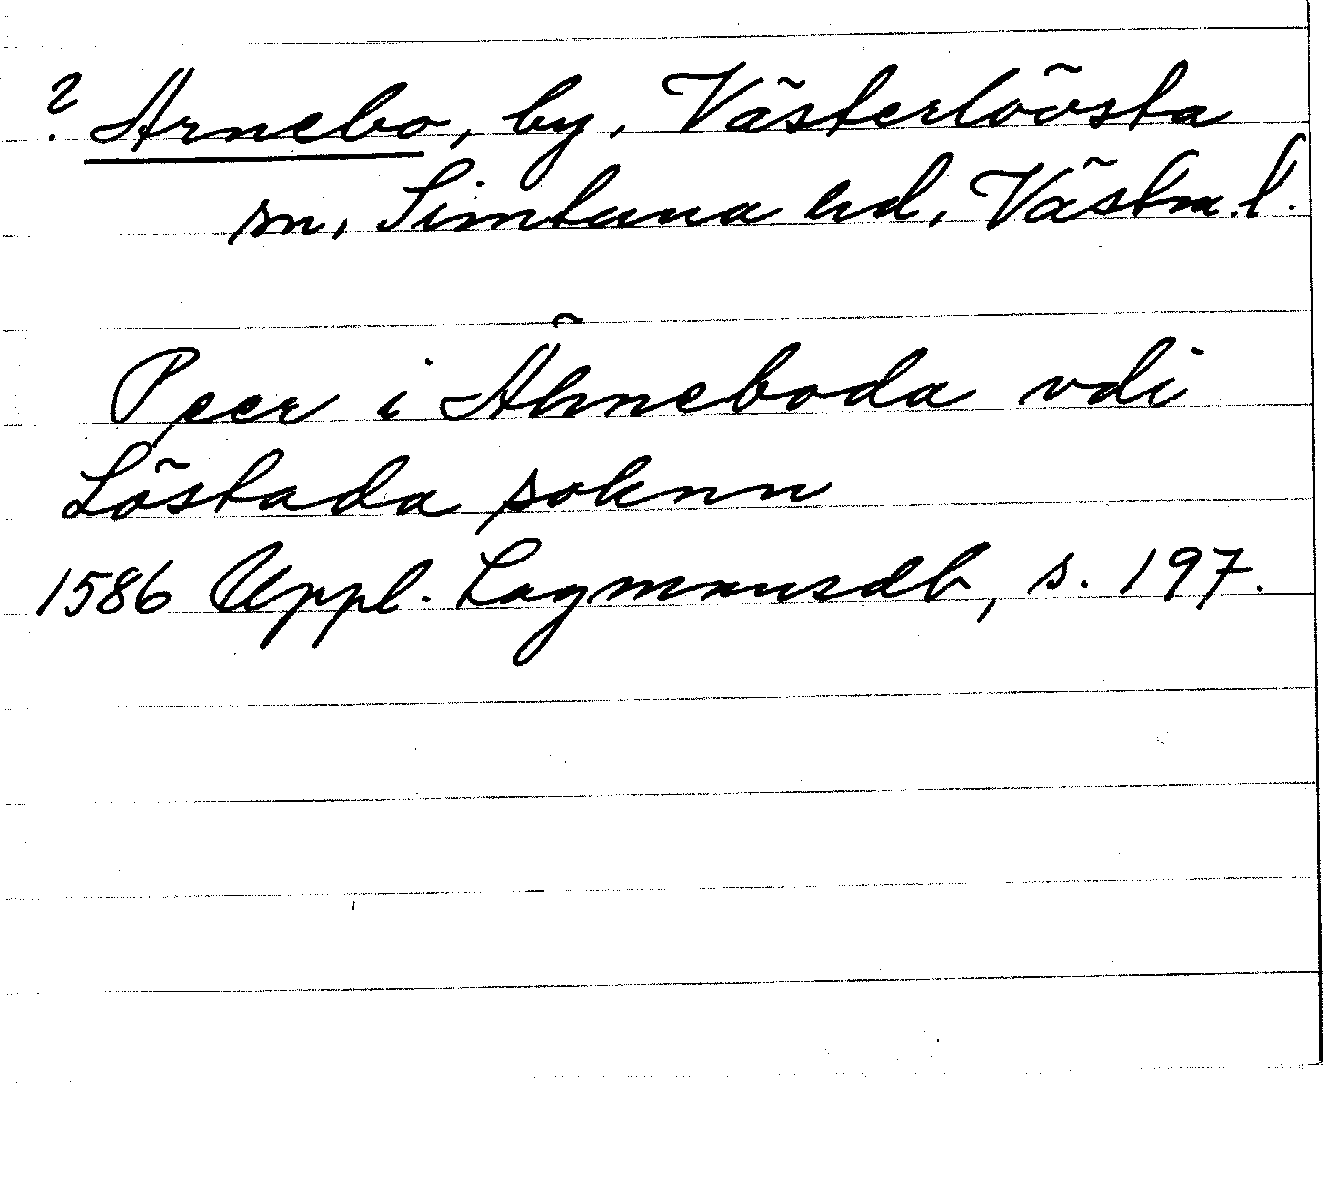 ? Arnebo, by, Västerlövsta
sn, Simtuna hd, Västm.l.
Peer i Ähneboda vdi
Löstada soknn
1586 Uppl. Lagmansdb, s. 197.